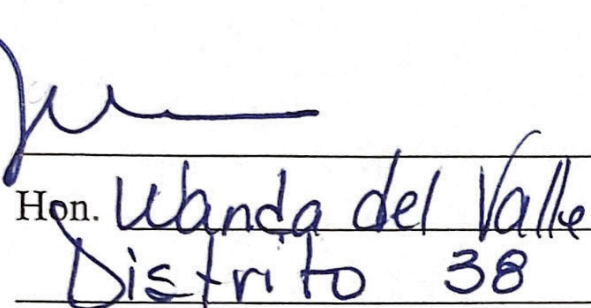 Hon. Wanda del Valle
Distrito 38